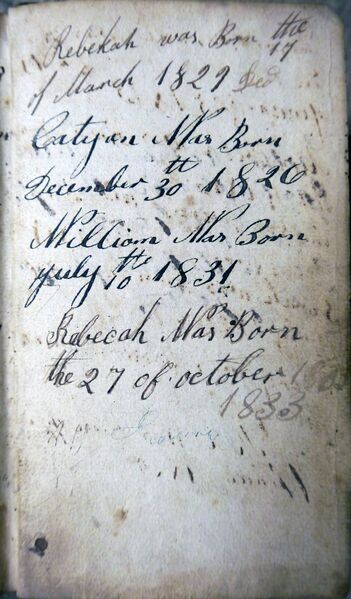 Rebekah was Born the
17
of March 1829 Ded
Catyan Was Born
December 30th 1826
William Was Born
July 10th 1831
Rebecah Was Born
the 27 of october
1833